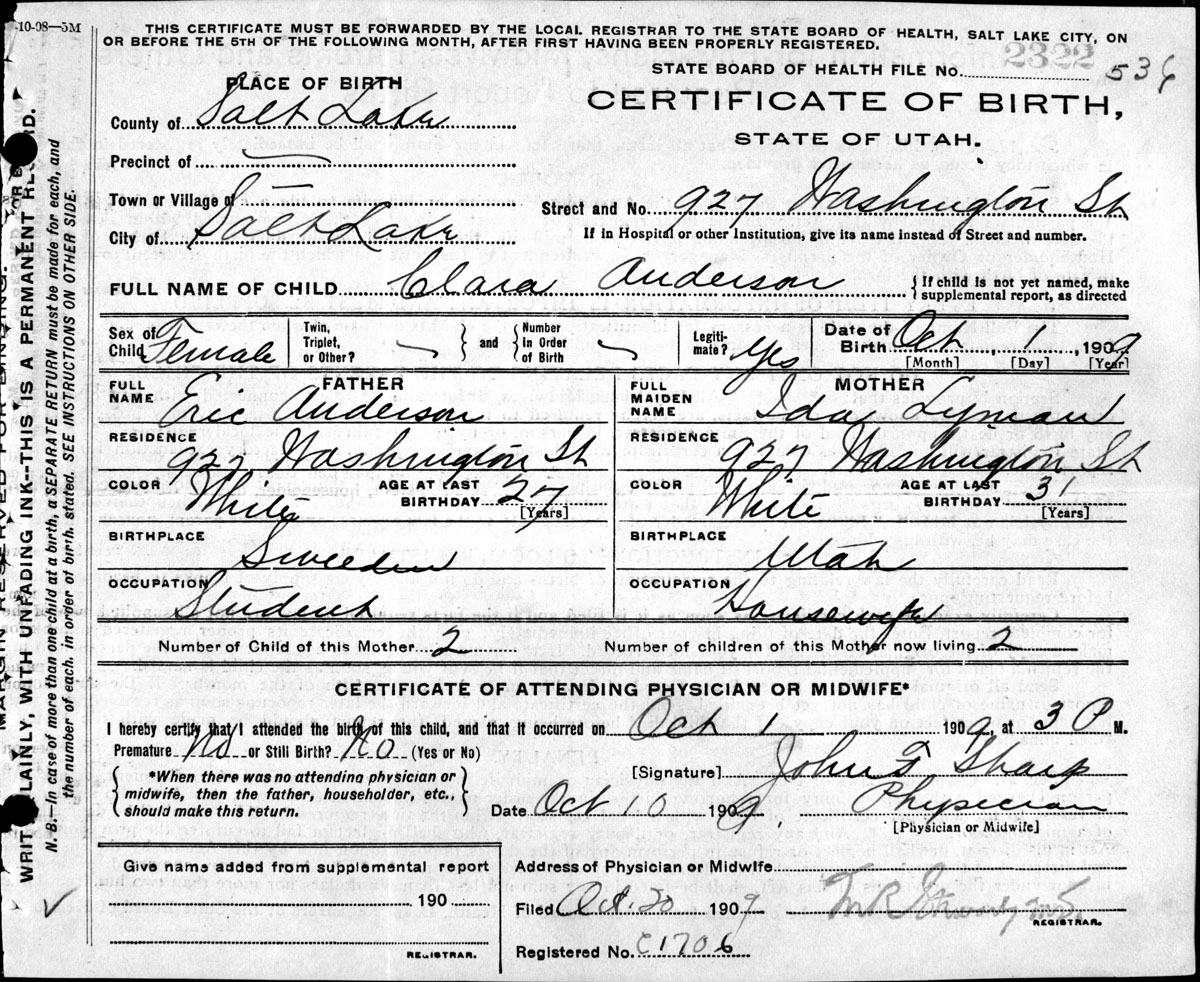 10-08—5M
THIS CERTIFICATE MUST BE FORWARDED BY THE LOCAL REGISTRAR TO THE STATE BOARD OF HEALTH, SALT LAKE CITY, ON
OR BEFORE THE 5TH OF THE FOLLOWING MONTH, AFTER FIRST HAVING BEEN PROPERLY REGISTERED.
2322
STATE BOARD OF HEALTH FILE No. 536
PLACE OF BIRTH
CERTIFICATE OF BIRTH,
STATE OF UTAH.
County of Salt Lake
Precinct of —
Town or Village of —
Street and No. 927 Washington St
City of Salt Lake
If in Hospital or other Institution, give its name instead of Street and number.
FULL NAME OF CHILD Clara Anderson
{If child is not yet named, make
supplemental report, as directed
Sex of Child Female
Twin, Triplet, or Other?
and
Number In Order of Birth
Legiti-mate? Yes
Date of Birth Oct, 1, 1909
[Month] [Day] [Year]
FATHER
FULL NAME Eric Anderson
RESIDENCE 927 Washington St
COLOR White
AGE AT LAST BIRTHDAY 27
[Years]
BIRTHPLACE Sweeden
OCCUPATION Student
MOTHER
FULL MAIDEN NAME Ida Lyman
RESIDENCE 927 Washington St
COLOR White
AGE AT LAST BIRTHDAY 31
[Years]
BIRTHPLACE Utah
OCCUPATION Housewife
Number of Child of this Mother 2
Number of children of this Mother now living 2
CERTIFICATE OF ATTENDING PHYSICIAN OR MIDWIFE*
I hereby certify that I attended the birth of this child, and that it occurred on Oct 1 1909, at 3 P M.
Premature No or Still Birth? No (Yes or No)
{*When there was no attending physician or
midwife, then the father, householder, etc.,
should make this return.}
[Signature] John F Sharp
Date Oct 10 1909, Physician
[Physician or Midwife]
Give name added from supplemental report
190
REGISTRAR.
Address of Physician or Midwife
Filed Oct. 20 1909
REGISTRAR.
Registered No. C1706
MARGIN RESERVED FOR BINDING.
WRITE PLAINLY, WITH UNFADING INK--THIS IS A PERMANENT RECORD.
N. B.—In case of more than one child at a birth, a SEPARATE RETURN must be made for each, and
the number of each, in order of birth, stated. SEE INSTRUCTIONS ON OTHER SIDE.